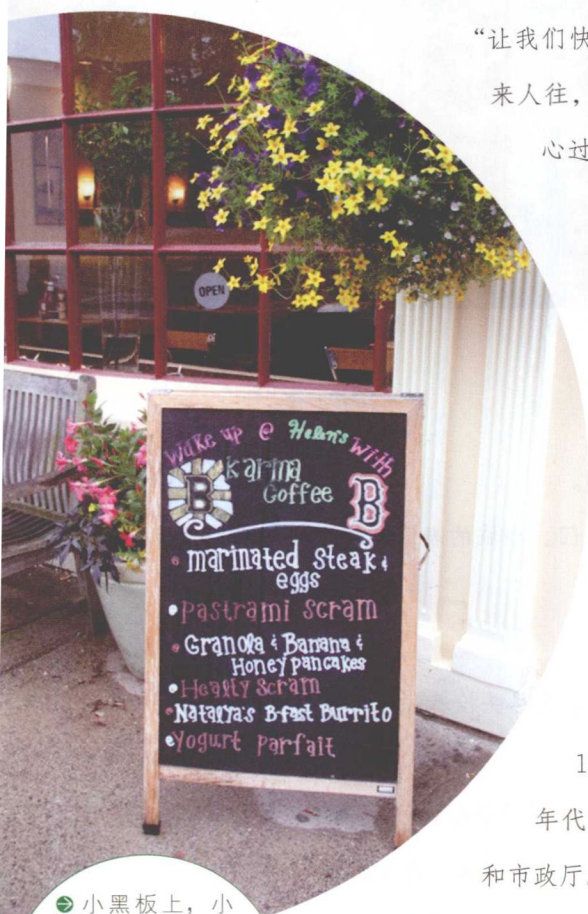 “让我们快
来人往，
心过
OPEN
Wake up @ Helen's with
Karma
Coffee
B B
marinated steak &
eggs
• Pastrami Scram
• Granola & Banana &
Honey Pancakes
• Healty Scram
• Natalya's B-fast Burrito
• Yogurt Parfait
1
年代
和市政厅
小黑板上，小